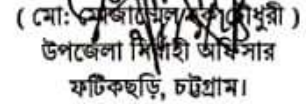 ( মো: মোজাম্মেল হক চৌধুরী )
উপজেলা নির্বাহী অফিসার
ফটিকছড়ি, চট্টগ্রাম।